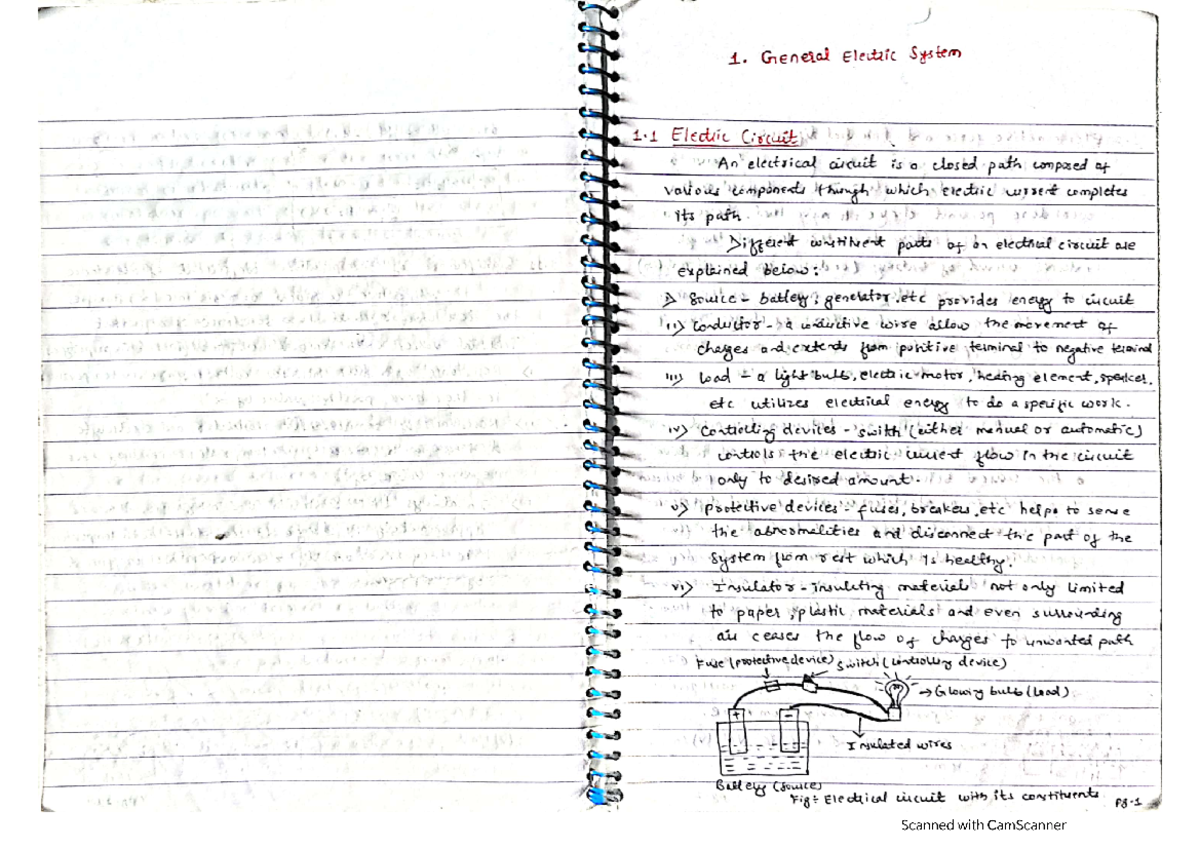 1. General Electric System
1.1 Electric Circuit
An electrical circuit is a closed path composed of
various components through which electric current completes
its path.
Different constituent parts of an electrical circuit are
explained below:
i) Source - battery, generator, etc provides energy to circuit
ii) Conductor - a conductive wire allow the movement of
charges and extends from positive terminal to negative terminal
iii) Load - a light bulb, electric motor, heating element, speaker,
etc utilizes electrical energy to do a specific work.
iv) Controlling devices - switch (either manual or automatic)
controls the electric current flow in the circuit
only to desired amount.
v) protective devices - fuses, breakers, etc helps to sense
the abnormalities and disconnect the part of the
system from rest which is healthy.
vi) Insulator - insulating materials not only limited
to paper, plastic materials and even surrounding
air ceases the flow of charges to unwanted path
Fuse (protective device) Switch (controlling device)
→ Glowing bulb (load)
+ -
Insulated wires
Battery (source)
Fig: Electrical circuit with its constituents
Pg-1
Scanned with CamScanner